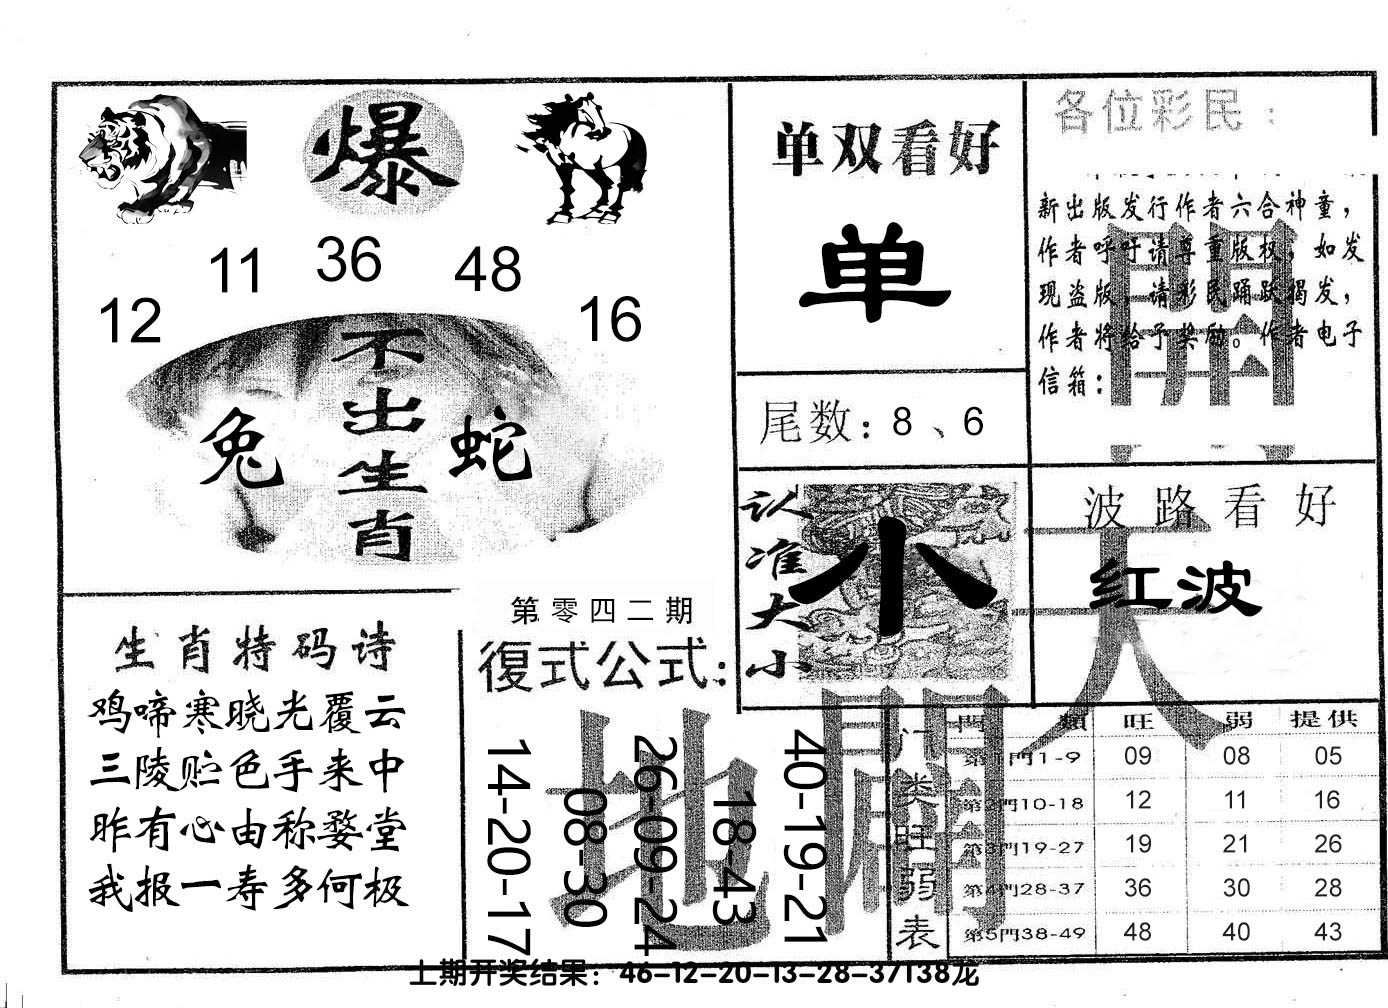 爆
11 36 48
12 16
不出生肖
兔 蛇
单双看好
单
尾数：8、6
各位彩民：
新出版发行作者六合神童，
作者呼吁请尊重版权，如发
现盗版，请彩民踊跃揭发，
作者将给予奖励。作者电子
信箱：
開
认准大小
小
波路看好
红波
天
生肖特码诗
鸡啼寒晓光覆云
三陵贮色手来中
昨有心由称婺堂
我报一寿多何极
第零四二期
復式公式：
14-20-17
08-30
26-09-24
18-43
40-19-21
地
門類 旺 弱 提供
第1門1-9 09 08 05
第2門10-18 12 11 16
第3門19-27 19 21 26
第4門28-37 36 30 28
第5門38-49 48 40 43
门类旺弱表
上期开奖结果：46-12-20-13-28-37T38龙